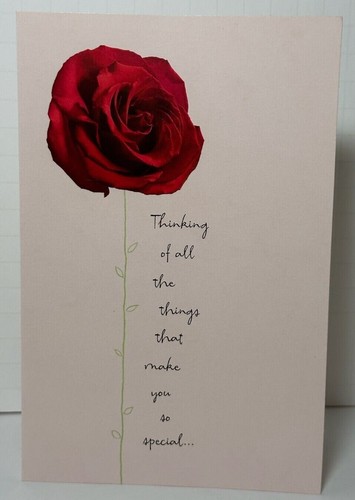 Thinking
of all
the
things
that
make
you
so
special...